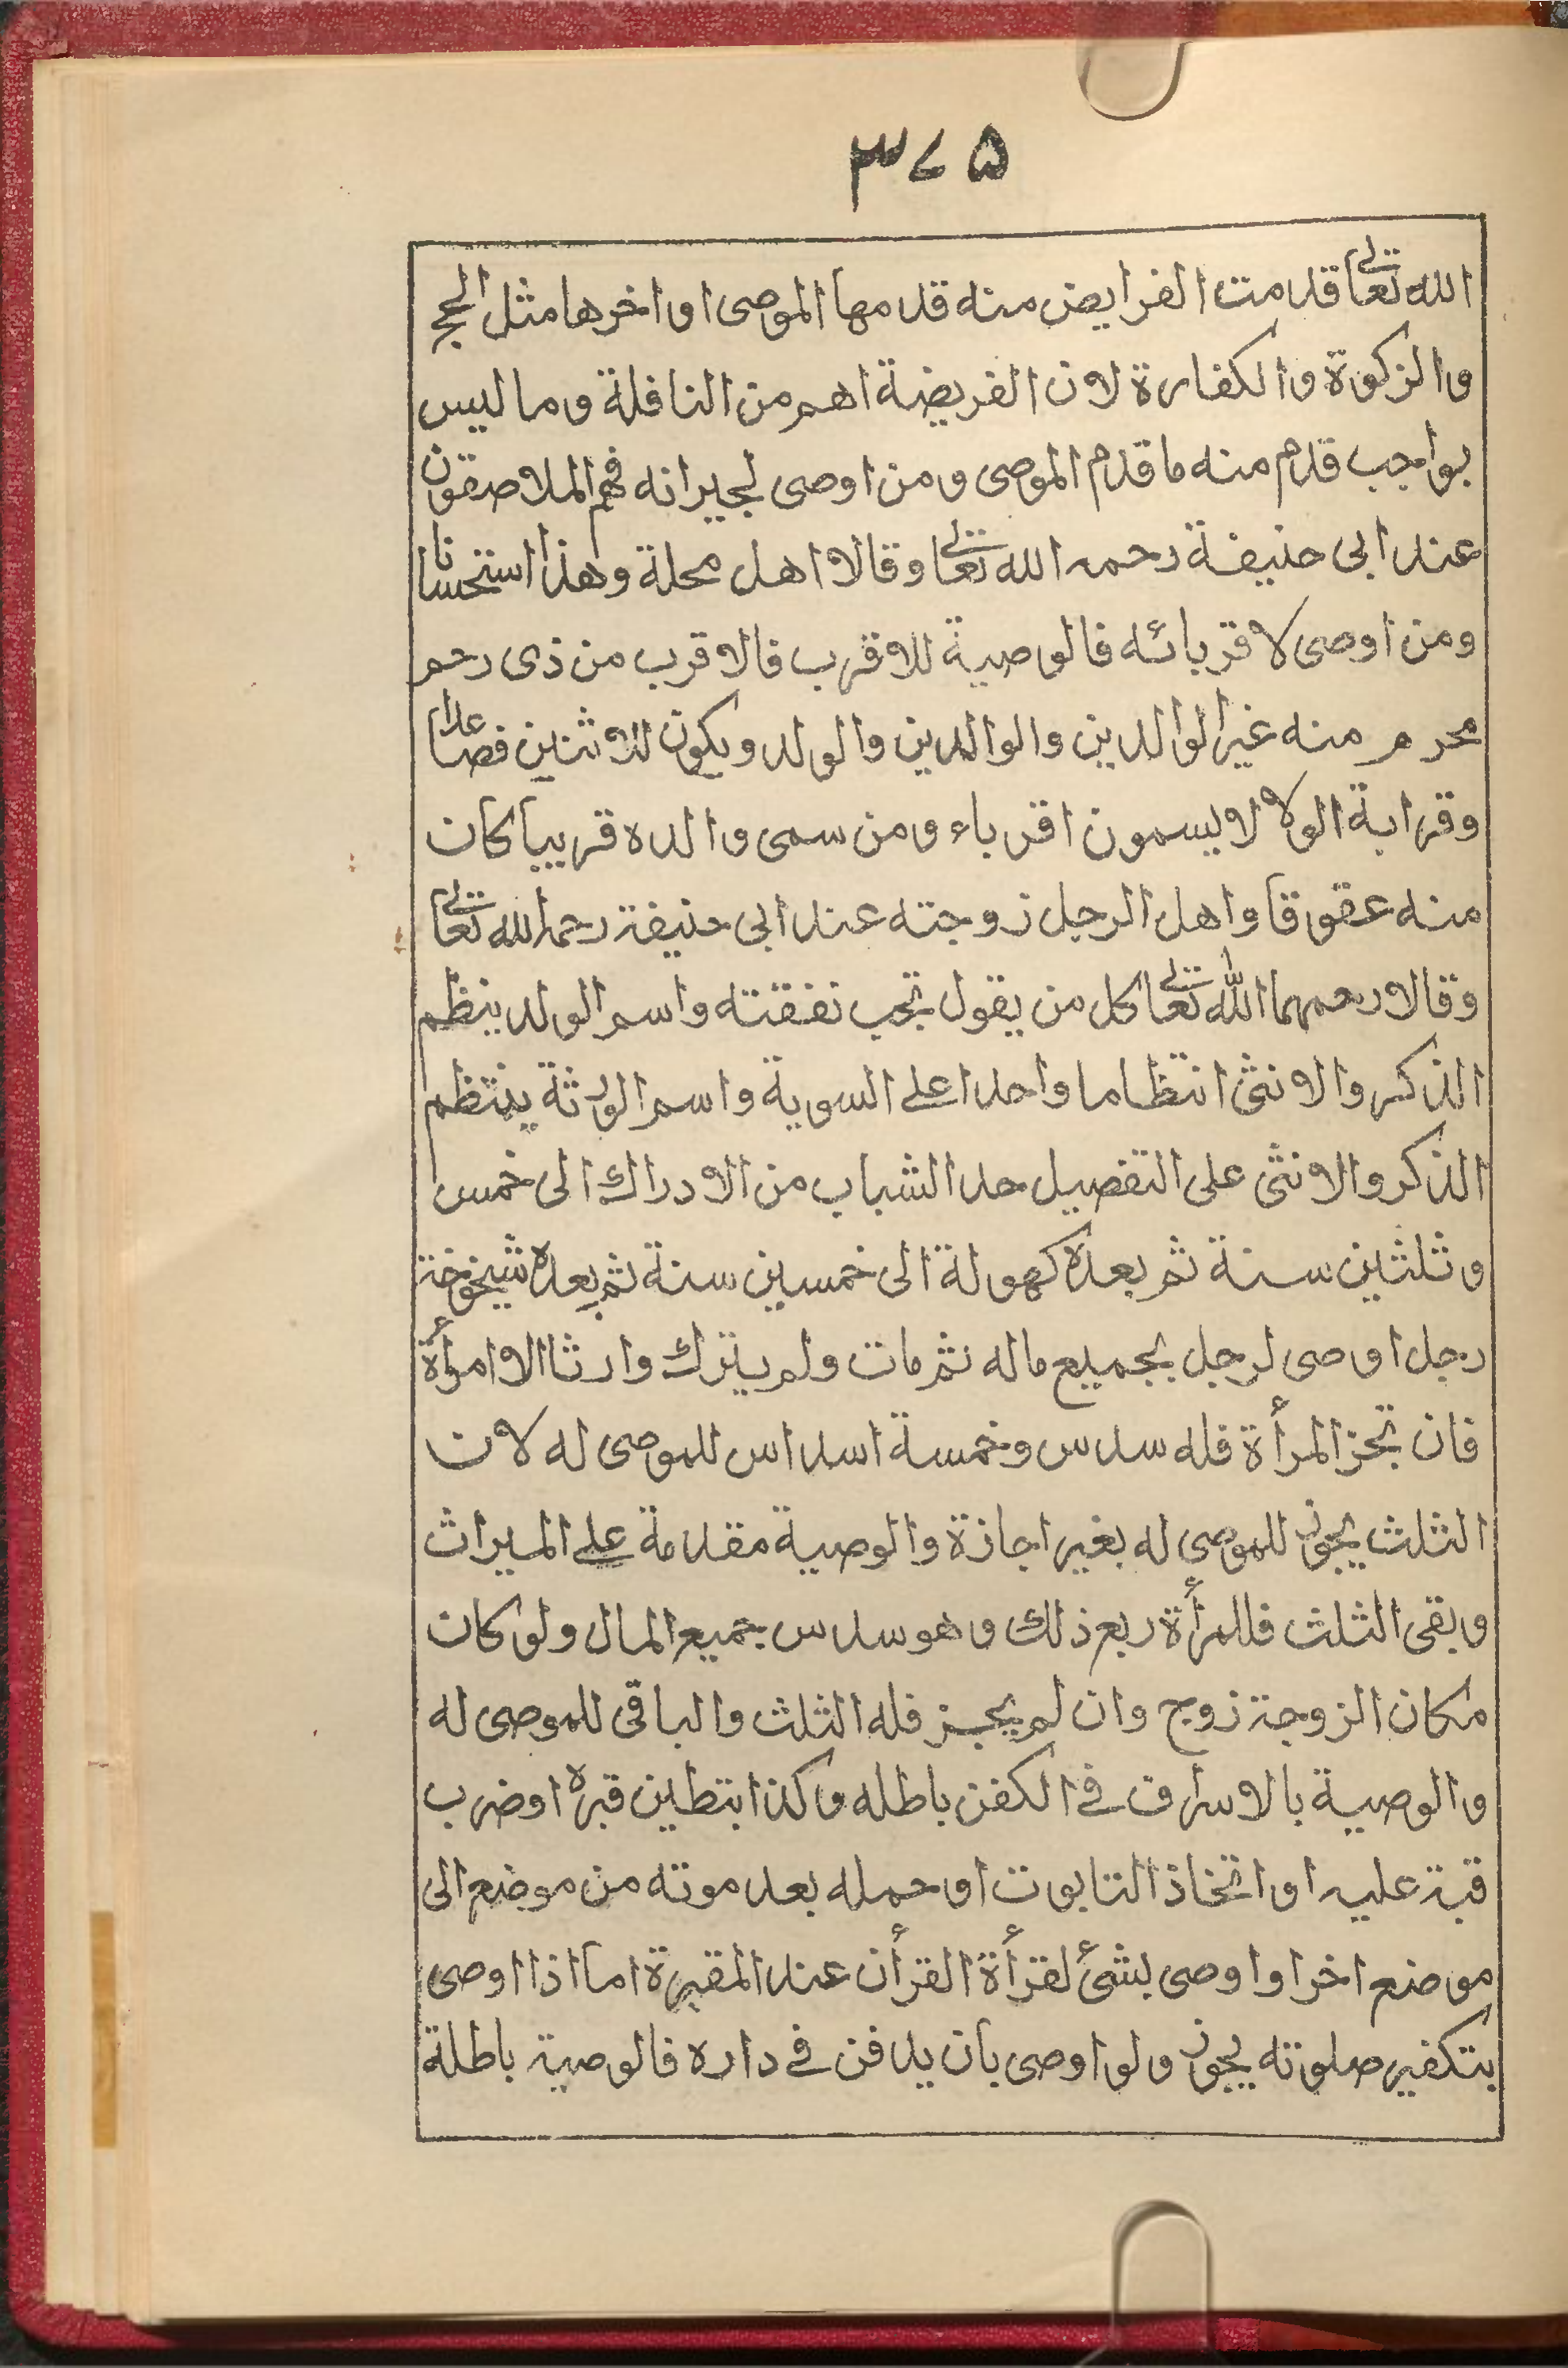 ۳۷۵
الله تعالى قدمت الفرايض منه قدمها الموصى او اخرها مثل الحج
والزكوة والكفارة لان الفريضة اهم من النافلة وما ليس
بواجب قدم منه ما قدم الموصى ومن اوصى لجيرانه فهم الملاصقون
عند ابى حنيفة رحمه الله تعالى وقالا اهل محلة وهذا استحسانا
ومن اوصى لاقربائه فالوصية للاقرب فالاقرب من ذى رحم
محرم منه غير الوالدين والوالدين والولد ويكون للاثنين فصاعدا
وقرابة الولا لا يسمون اقرباء ومن سمى والده قريبا كان
منه عقوقا واهل الرجل زوجته عند ابى حنيفة رحمه الله تعالى
وقالا رحمهما الله تعالى كل من يقول تجب نفقته واسم الولد ينظم
الذكر والانثى انتظاما واحدا على السوية واسم الورثة ينتظم
الذكر والانثى على التفصيل حد الشباب من الادراك الى خمس
وثلثين سنة ثم بعده كهولة الى خمسين سنة ثم بعده شيخوخة
رجل اوصى لرجل بجميع ماله ثم مات ولم يترك وارثا الا امرأة
فان تجز المرأة فله سدس وخمسة اسداس للموصى له لان
الثلث يجوز للموصى له بغير اجازة والوصية مقدمة على الميراث
وبقى الثلث فللمرأة ربع ذلك وهو سدس جميع المال ولو كان
مكان الزوجة زوج وان لم يجز فله الثلث والباقى للموصى له
والوصية بالاسراف فى الكفن باطله وكذا بتطين قبره او ضرب
قبة عليه او اتخاذ التابوت او حمله بعد موته من موضع الى
موضع اخر او اوصى بشئ لقرأة القرأن عند المقبرة اما اذا اوصى
بتكفير صلوته يجوز ولو اوصى بان يدفن فى داره فالوصية باطلة